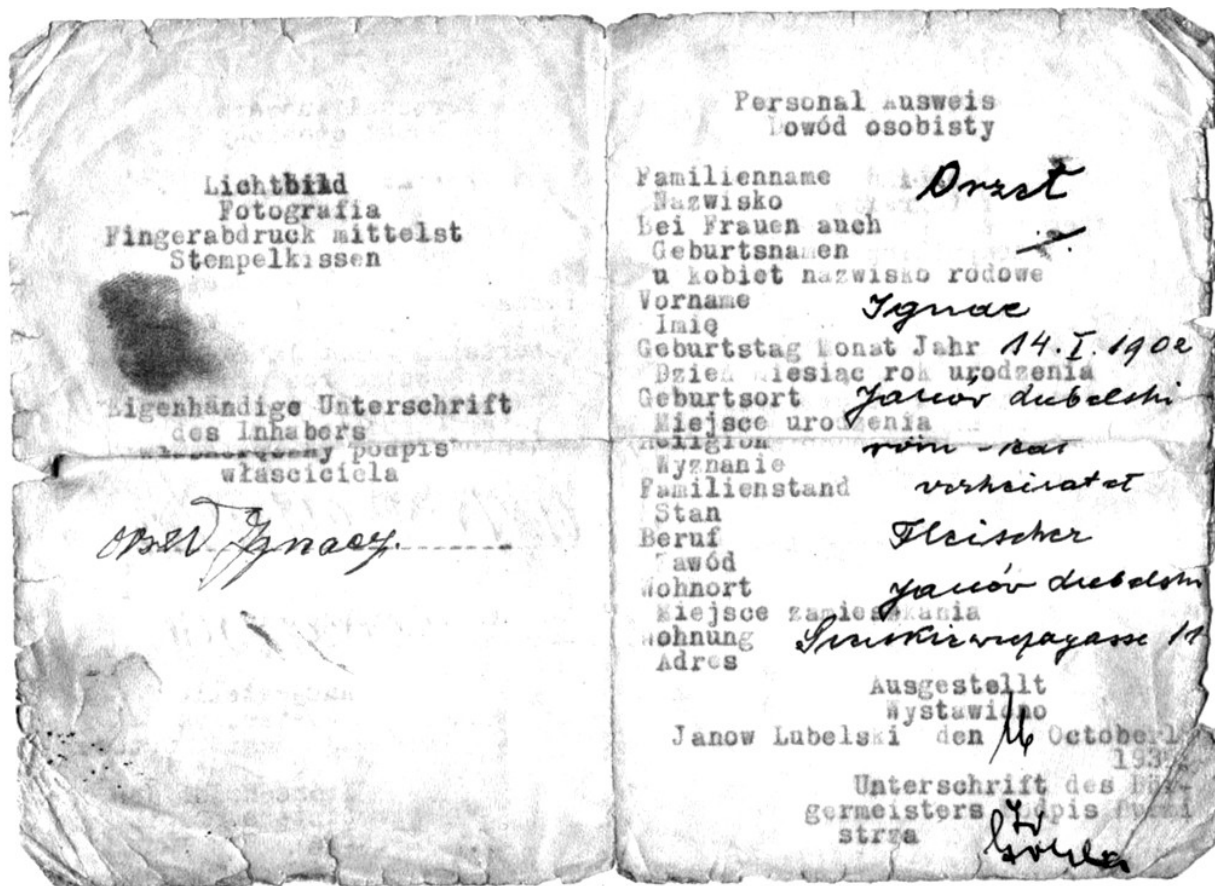 Lichtbild
Fotografia
Fingerabdruck mittelst
Stempelkissen
Eigenhändige Unterschrift
des Inhabers
podpis
właściciela
Ignacy.
Personal Ausweis
Dowód osobisty
Familienname
Nazwisko
Bei Frauen auch
Geburtsnamen
u kobiet nazwisko rodowe
Vorname Ignac
Imię
Geburtstag Monat Jahr 14.I.1902
Dzień miesiąc rok urodzenia
Geburtsort Janów Lubelski
Miejsce urodzenia
Religion röm-kat
Wyznanie
Familienstand verheiratet
Stan
Beruf Fleischer
Zawód
Wohnort Janów Lubelski
Miejsce zamieszkania
Wohnung 11
Adres
Ausgestellt
Wystawiono
Janow Lubelski den 16 October
Unterschrift des Bür-
germeisters Podpis Burmi
strza